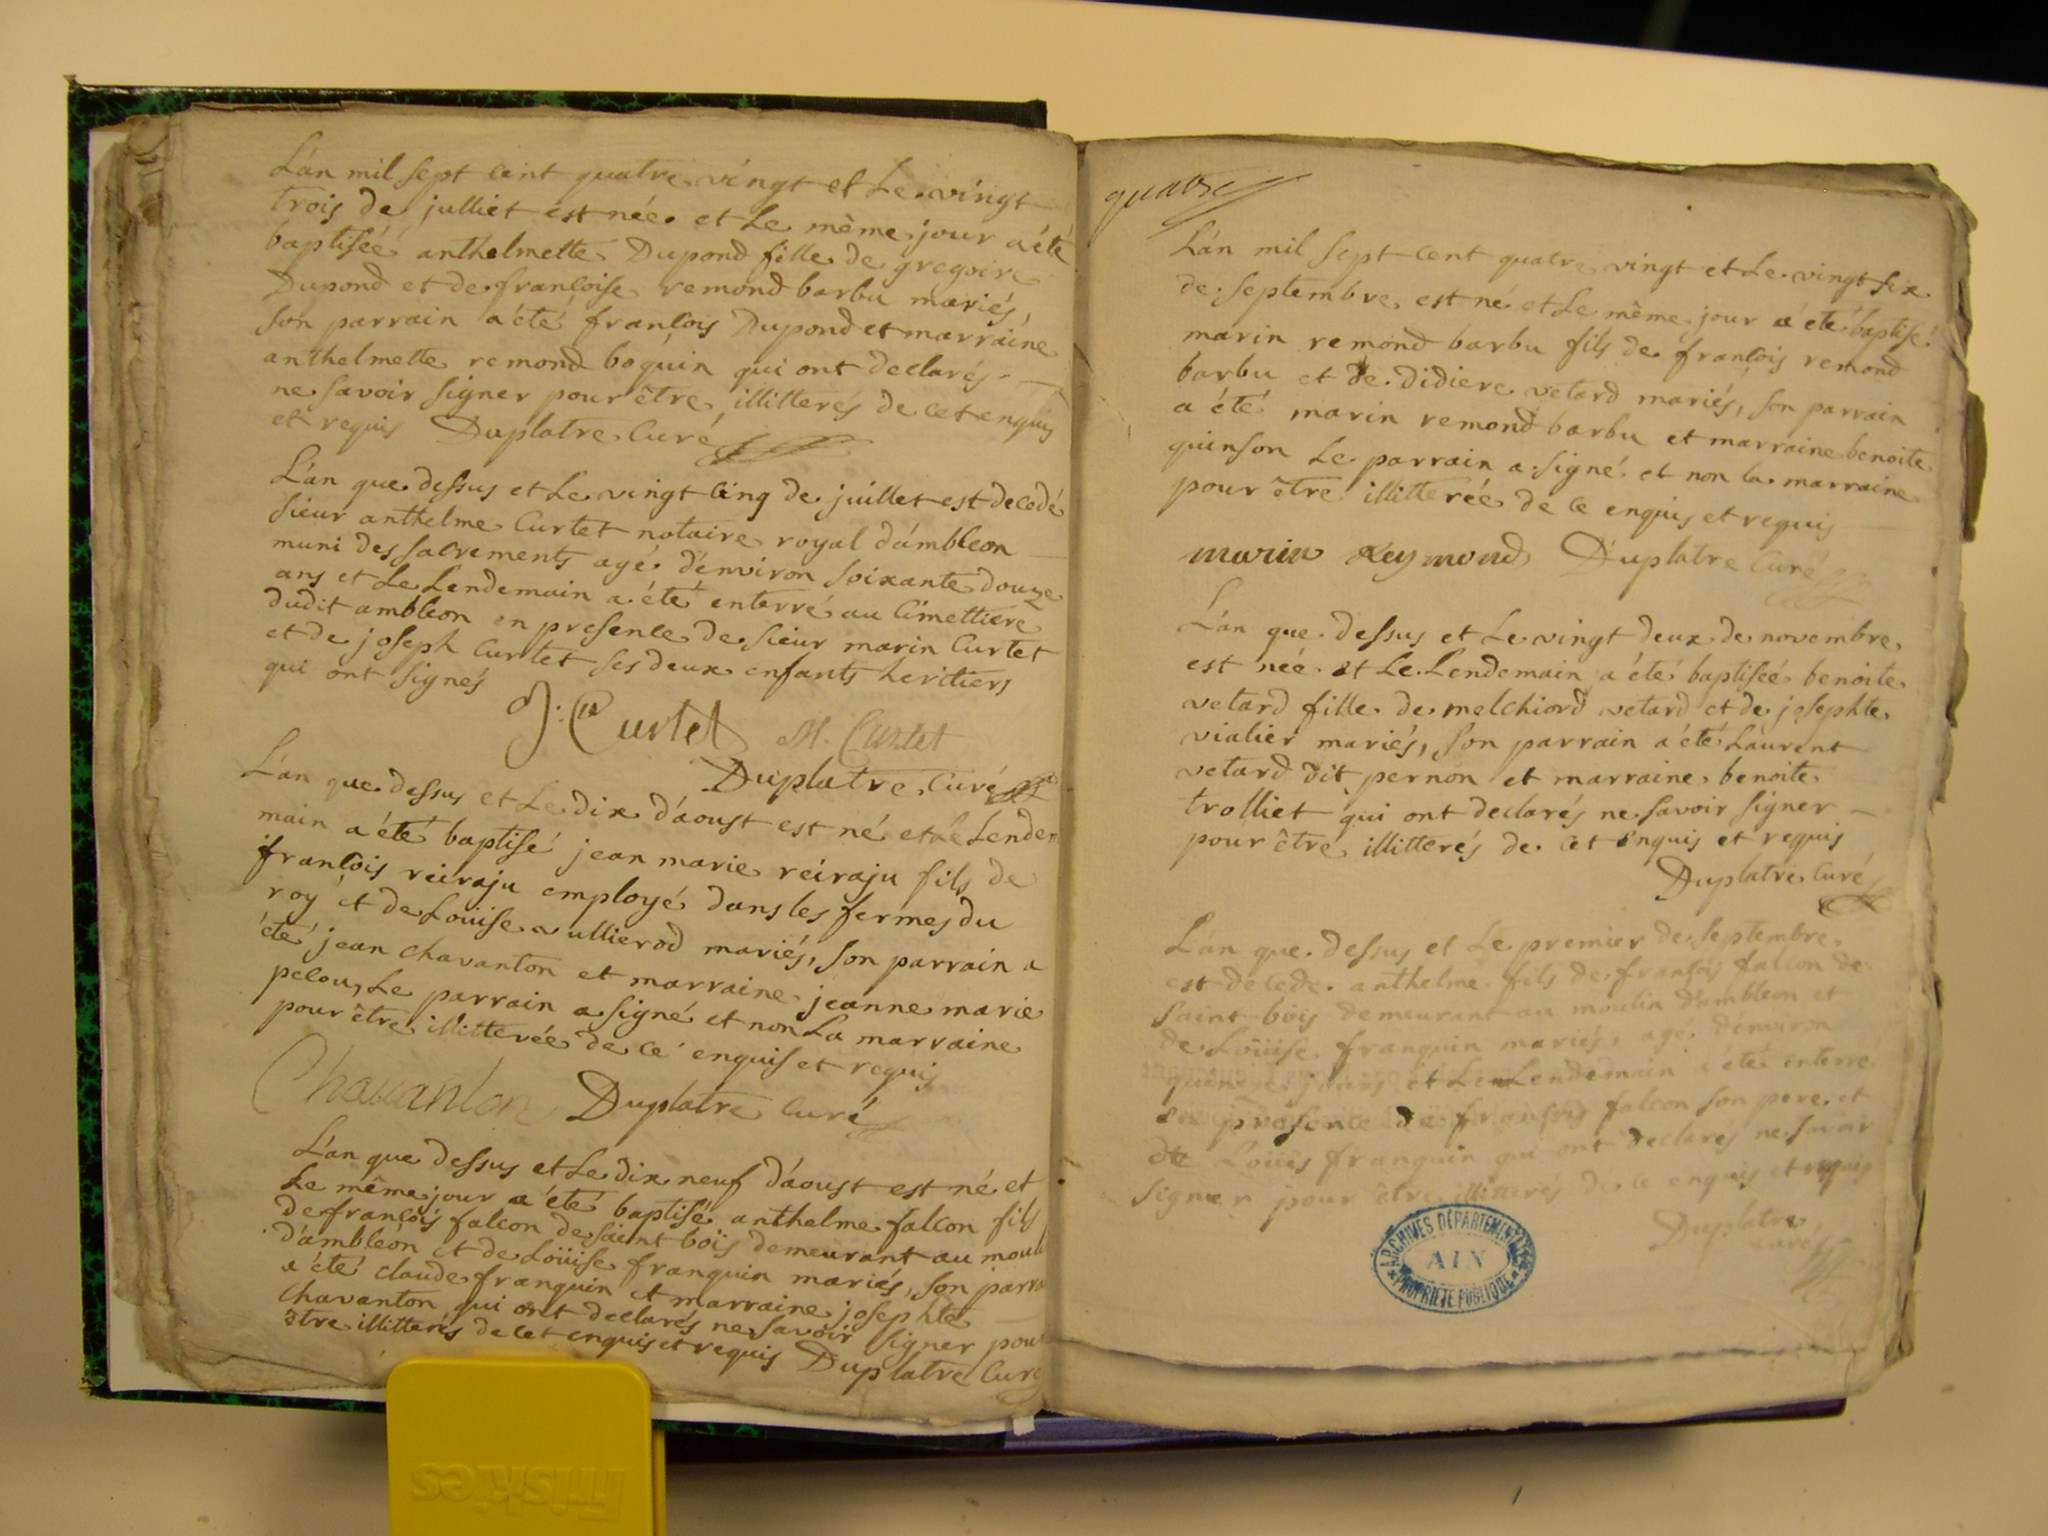 L'án mil sept cent quatre vingt et Le vingt
trois de julliet est née et Le même jour a été
baptiséé anthelmette Dupond fille de gregoire
Dupond et de françoise remond barbu mariés,
son parrain a été françois Dupond et marraine
anthelmette remond boquin qui ont declarés
ne savoir signer pour être illitterés de ce enquis
et requis Duplatre Curé
L'án que dessus et Le vingt cinq de juillet est decedé
sieur anthelme Curtet notaire royal d'ámbleon
muni des sacrements agé d'énviron soixante douze
ans et Le Lendemain a été enterré au Cimettiere
dudit ambleon en presence de sieur marin Curtet
et de joseph Curtet ses deux enfants heritiers
qui ont signés
J. Curtet M. Curtet
Duplatre Curé
L'án que dessus et Le dix d'áoust est né et le Lende=
main a été baptisé jean marie reiraju fils de
françois reiraju employé dans les fermes du
roy et de Loüise vullierod mariés, son parrain a
été jean chavanton et marraine jeanne marie
pelou, Le parrain a signé et non La marraine
pour être illitterée de ce enquis et requis
Chavanton Duplatre Curé
L'án que dessus et Le dix neuf d'áoust est né et
Le même jour a été baptisé anthelme falcon fils
de françois falcon de saint boïs demeurant au moul
d'ámbléon et de Loüise franquin mariés, son parra
a été claude franquin et marraine josephte
chavanton qui ont declarés ne savoir signer pour
être illitterés de cet enquis et requis Duplatre Curé
quatre
L'án mil sept cent quatre vingt et Le vingt six
de septembre est né et Le même jour a été baptisé
marin remond barbu fils de françois remond
barbu et de didiere vetard mariés, son parrain
a été marin remond barbu et marraine benoite
quinson Le parrain a signé et non la marraine
pour être illitterée de ce enquis et requis
marin Reymond Duplatre Curé
L'án que dessus et Le vingt deux de novembre
est née et Le Lendemain a été baptiséé benoite
vetard fille de melchiord vetard et de josephte
vialier mariés, son parrain a été Láurent
vetard dit pernon et marraine benoite
trolliet qui ont declarés ne savoir signer
pour être illitterés de cet enquis et requis
Duplatre Curé
L'án que dessus et Le premier de septembre
est decede anthelme fils de françois falcon de
saint bois demeurant au moulin d'ambleon et
de Loüise franquin mariés, agé d'énviron
quinze jours et Le Lendemain a été enterré
en presence de françois falcon son pere et
de Loüis franquin qui ont declarés ne savoir
signer pour être illitterés de ce enquis et requis
Duplatre
curé
ARCHIVES DÉPARTEMENTALES
AIN
PROPRIÉTÉ PUBLIQUE
Friskies